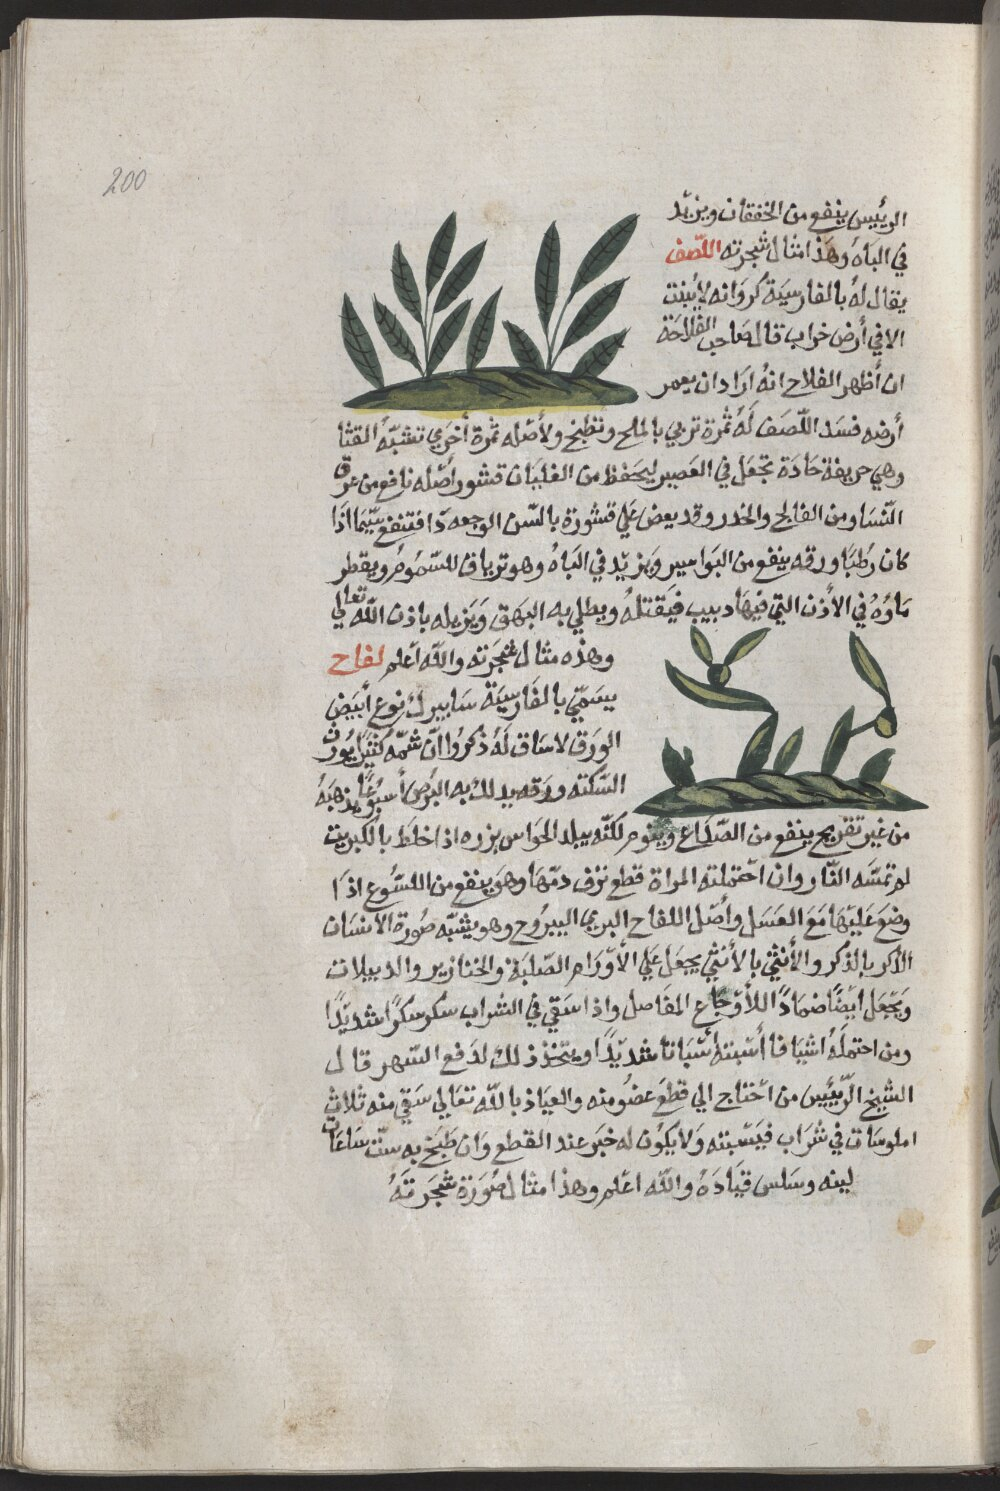 200
الرئيس ينفع من الخفقان ويزيد
في الباه وهذا مثال شجرته اللصف
يقال له بالفارسية كروانه لا ينبت
الا في أرض خراب قال صاحب الفلاحة
ان أظهر الفلاح انه اراد ان يعمر
أرضه فسد اللصف له ثمرة تربي بالملح وتطبخ ولأصله ثمرة أخري تشبه القثا
وهي حريفة حادة تجعل في العصير ليحفظ من الغليان قشور أصله نافع من عرق
النسا ومن الفالج والخدر وقد يعض علي قشوره بالسن الوجعه فتنفع سيما اذا
كان رطبا ورقه ينفع من البواسير ويزيد في الباه وهو ترياق للسموم ويقطر
ماؤه في الأذن التي فيها دبيب فيقتله ويطلي به البهق ويزيله باذن الله تعالي
وهذه مثال شجرته والله اعلم لفاح
يسمي بالفارسية سابيرك نوع أبيض
الورق لاساق له ذكروا ان شمه كثيرا يورث
السكته ورقه يدلك به البرص أسبوعا يذهبه
من غير تقريح ينفع من الصداع وينوم لكنه يبلد الحواس بزره اذا خلط بالكبريت
لم تمسه النار وان احتملته المراة قطع نزف دمها وهو ينفع من اللسوع اذا
وضع عليها مع العسل وأصل اللفاح البري اليبروح وهو يشبه صورة الانسان
الذكر بالذكر والأنثي بالأنثي يجعل علي الأورام الصلبة والخنازير والدبيلات
ويجعل ايضا ضمادا للأوجاع المفاصل واذا سقي في الشراب سكر سكرا شديدا
ومن احتمله اشيافا أسبته أسباتا شديدا ويتخذ ذلك لدفع السهر قال
الشيخ الرئيس من احتاج الي قطع عضو منه والعياذ بالله تعالي سقي منه ثلاث
املوسات في شراب فيسبته ولا يكون له خبر عند القطع وان طبخ به ست ساعات
لينه وسلس قياده والله اعلم وهذا مثال صورة شجرته